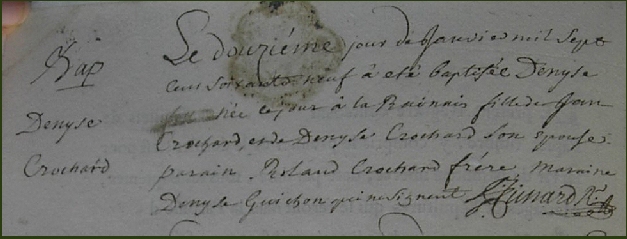 Bap
Denyse
Crochard
Le douziéme jour de Janvier mil Sept
Cent soixante neuf à eté baptisée Denyse
née ce jour à la Rainais fille de Jean
Crochard, et de Denyse Crochard Son epouse.
parain. Roland Crochard frére. Maraine
Denyse Guichon qui ne signent